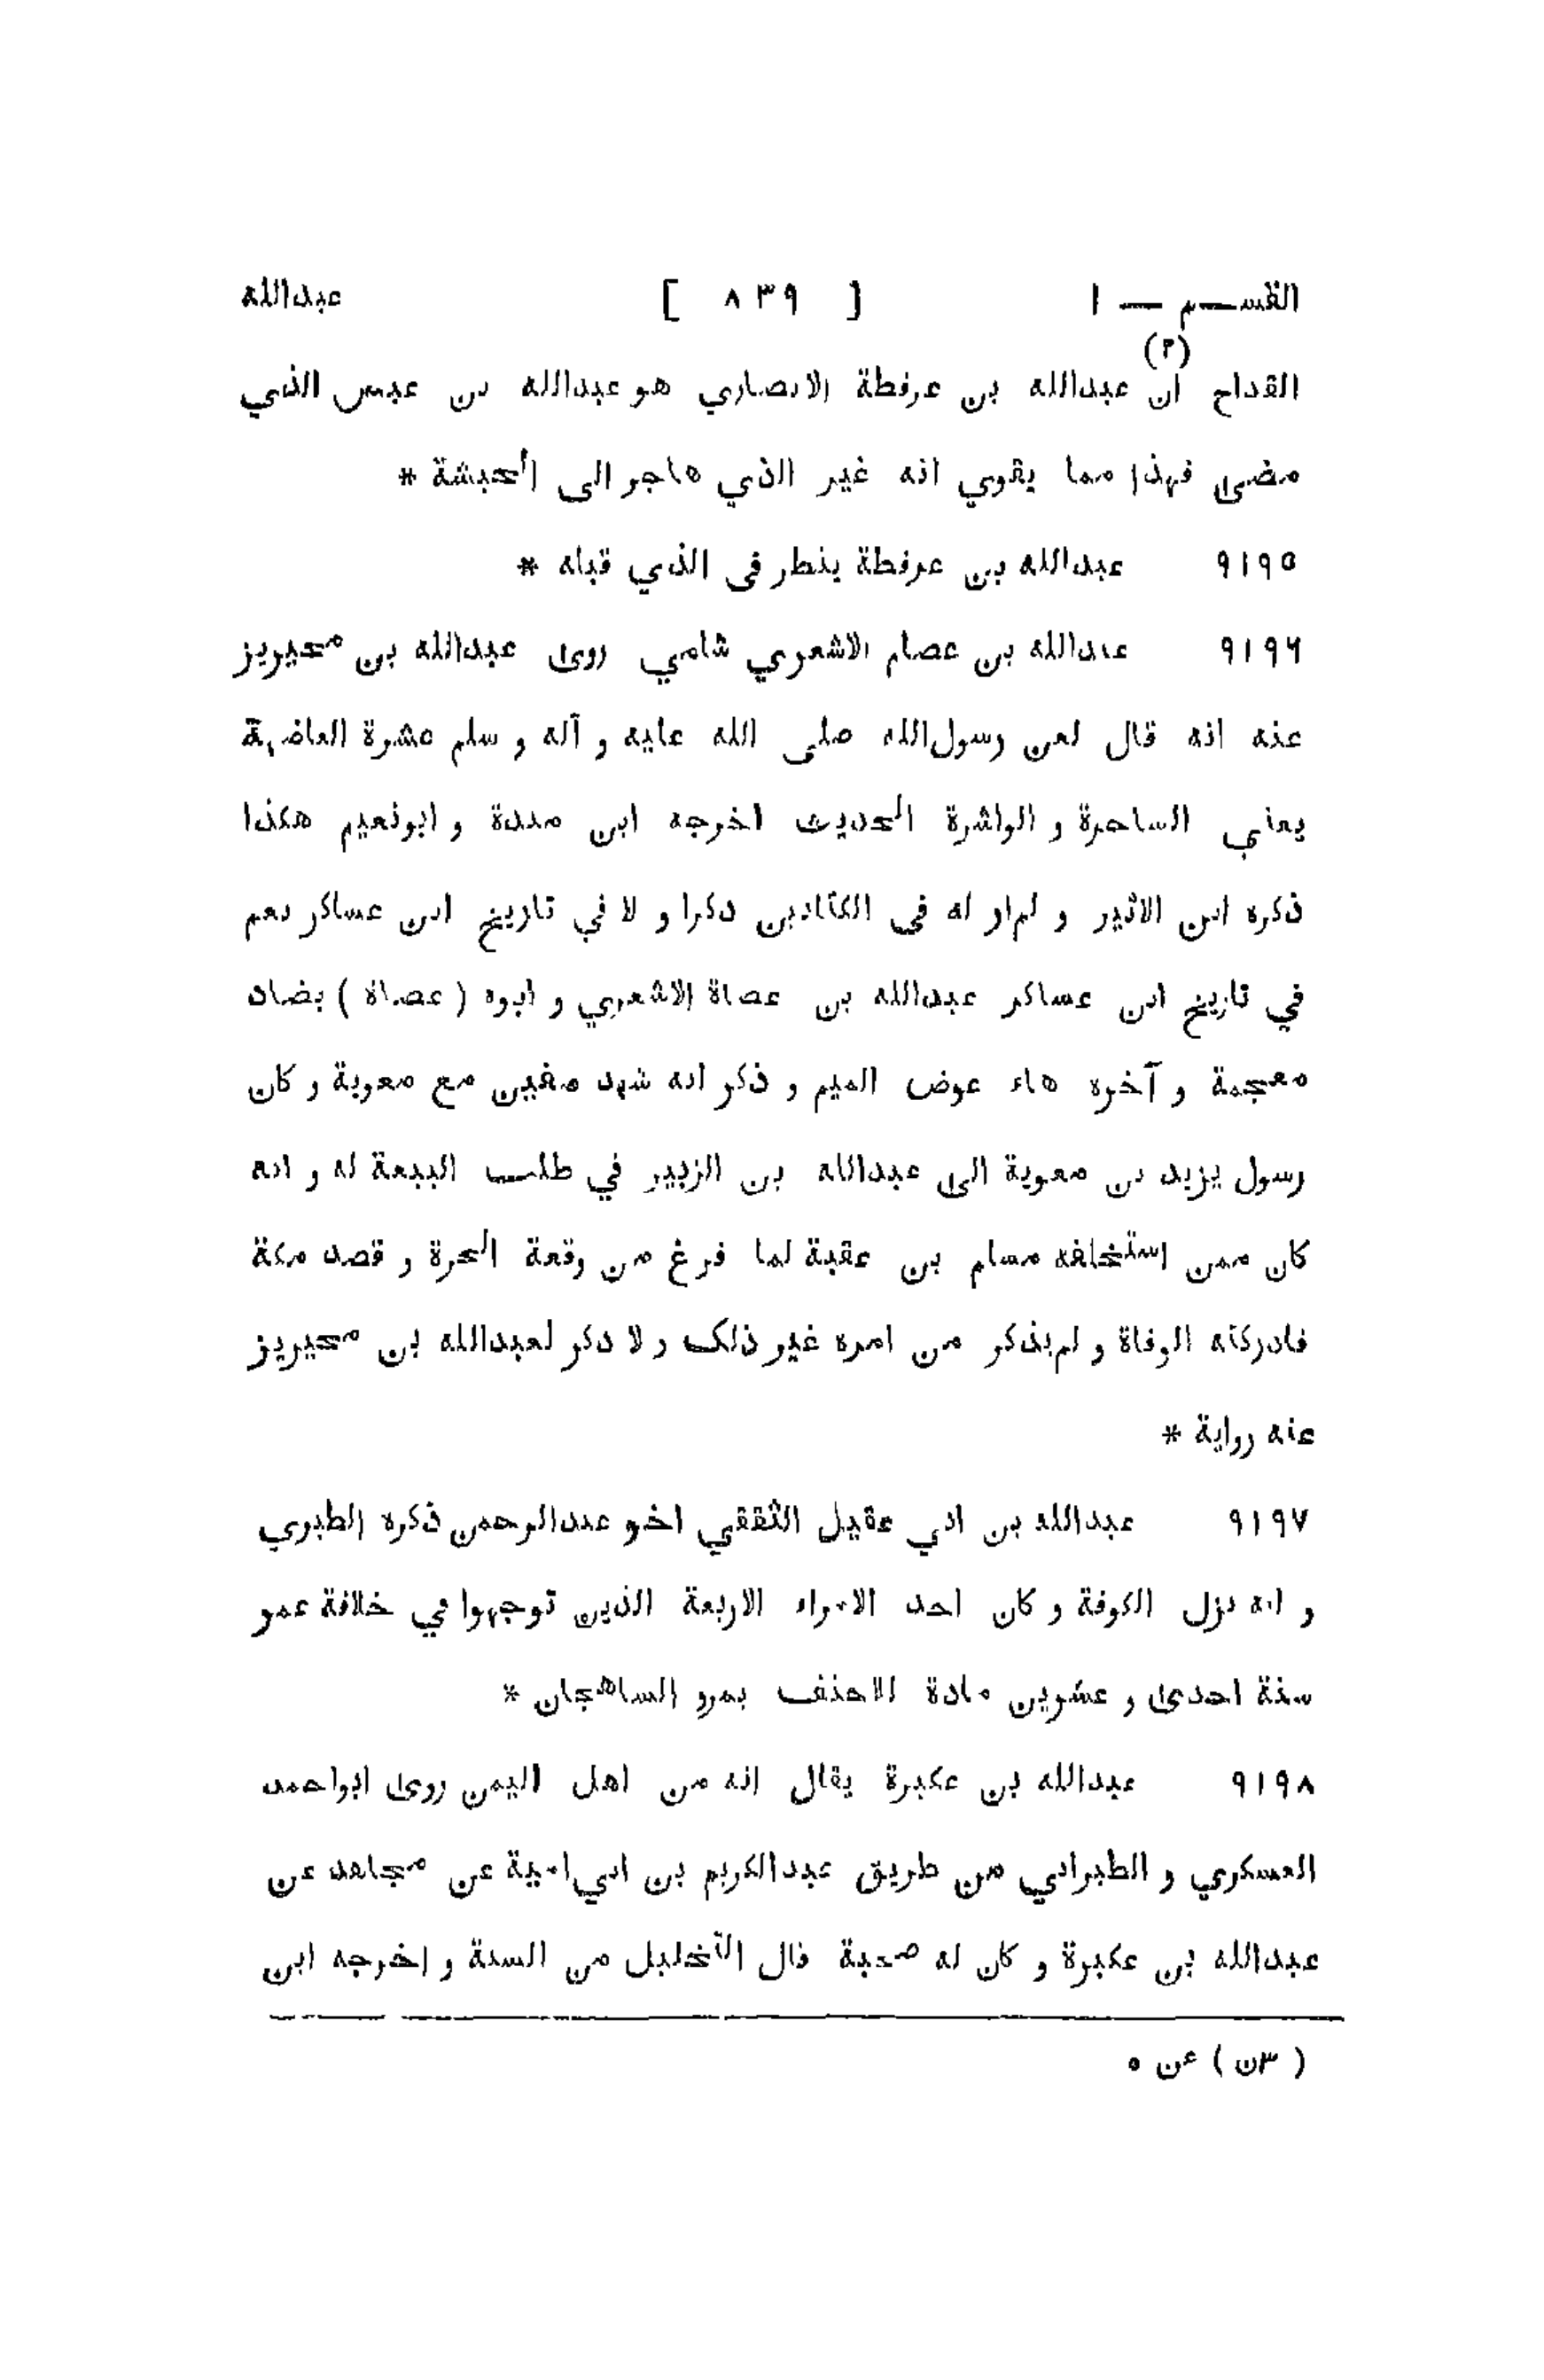 القسم — ١ [ ٨٣٩ ] عبدالله
(٣)
القداح ان عبدالله بن عرفطة الانصاري هو عبدالله بن عبس الذي
مضى فهذا مما يقوي انه غير الذي هاجر الى الحبشة *
٩١٩٥ عبدالله بن عرفطة ينظر فى الذي قبله *
٩١٩٦ عبدالله بن عصام الاشعري شامي روى عبدالله بن محيريز
عنه انه قال لعن رسول الله صلى الله عليه و آله و سلم عشرة العاضهة
يعني الساحرة و الواشرة الحديث اخرجه ابن مندة و ابونعيم هكذا
ذكره ابن الاثير و لم ار له فى الكتابين ذكرا و لا في تاريخ ابن عساكر نعم
في تاريخ ابن عساكر عبدالله بن عضاة الاشعري و ابوه ( عضاة ) بضاد
معجمة و آخره هاء عوض الميم و ذكر انه شهد صفين مع معوية و كان
رسول يزيد بن معوية الى عبدالله بن الزبير في طلب البيعة له و انه
كان ممن استخلفه مسلم بن عقبة لما فرغ من وقعة الحرة و قصد مكة
فادركته الوفاة و لم يذكر من امره غير ذلك و لا ذكر لعبدالله بن محيريز
عنه رواية *
٩١٩٧ عبدالله بن ابي عقيل الثقفي اخو عبدالرحمن ذكره الطبري
و انه نزل الكوفة و كان احد الامراء الاربعة الذين توجهوا في خلافة عمر
سنة احدى و عشرين مادة للاحنف بمرو الساهجان *
٩١٩٨ عبدالله بن عكبرة يقال انه من اهل اليمن روى ابواحمد
العسكري و الطبراني من طريق عبدالكريم بن ابي امية عن مجاهد عن
عبدالله بن عكبرة و كان له صحبة قال التخليل من السنة و اخرجه ابن
( ٣ن ) عن ٥